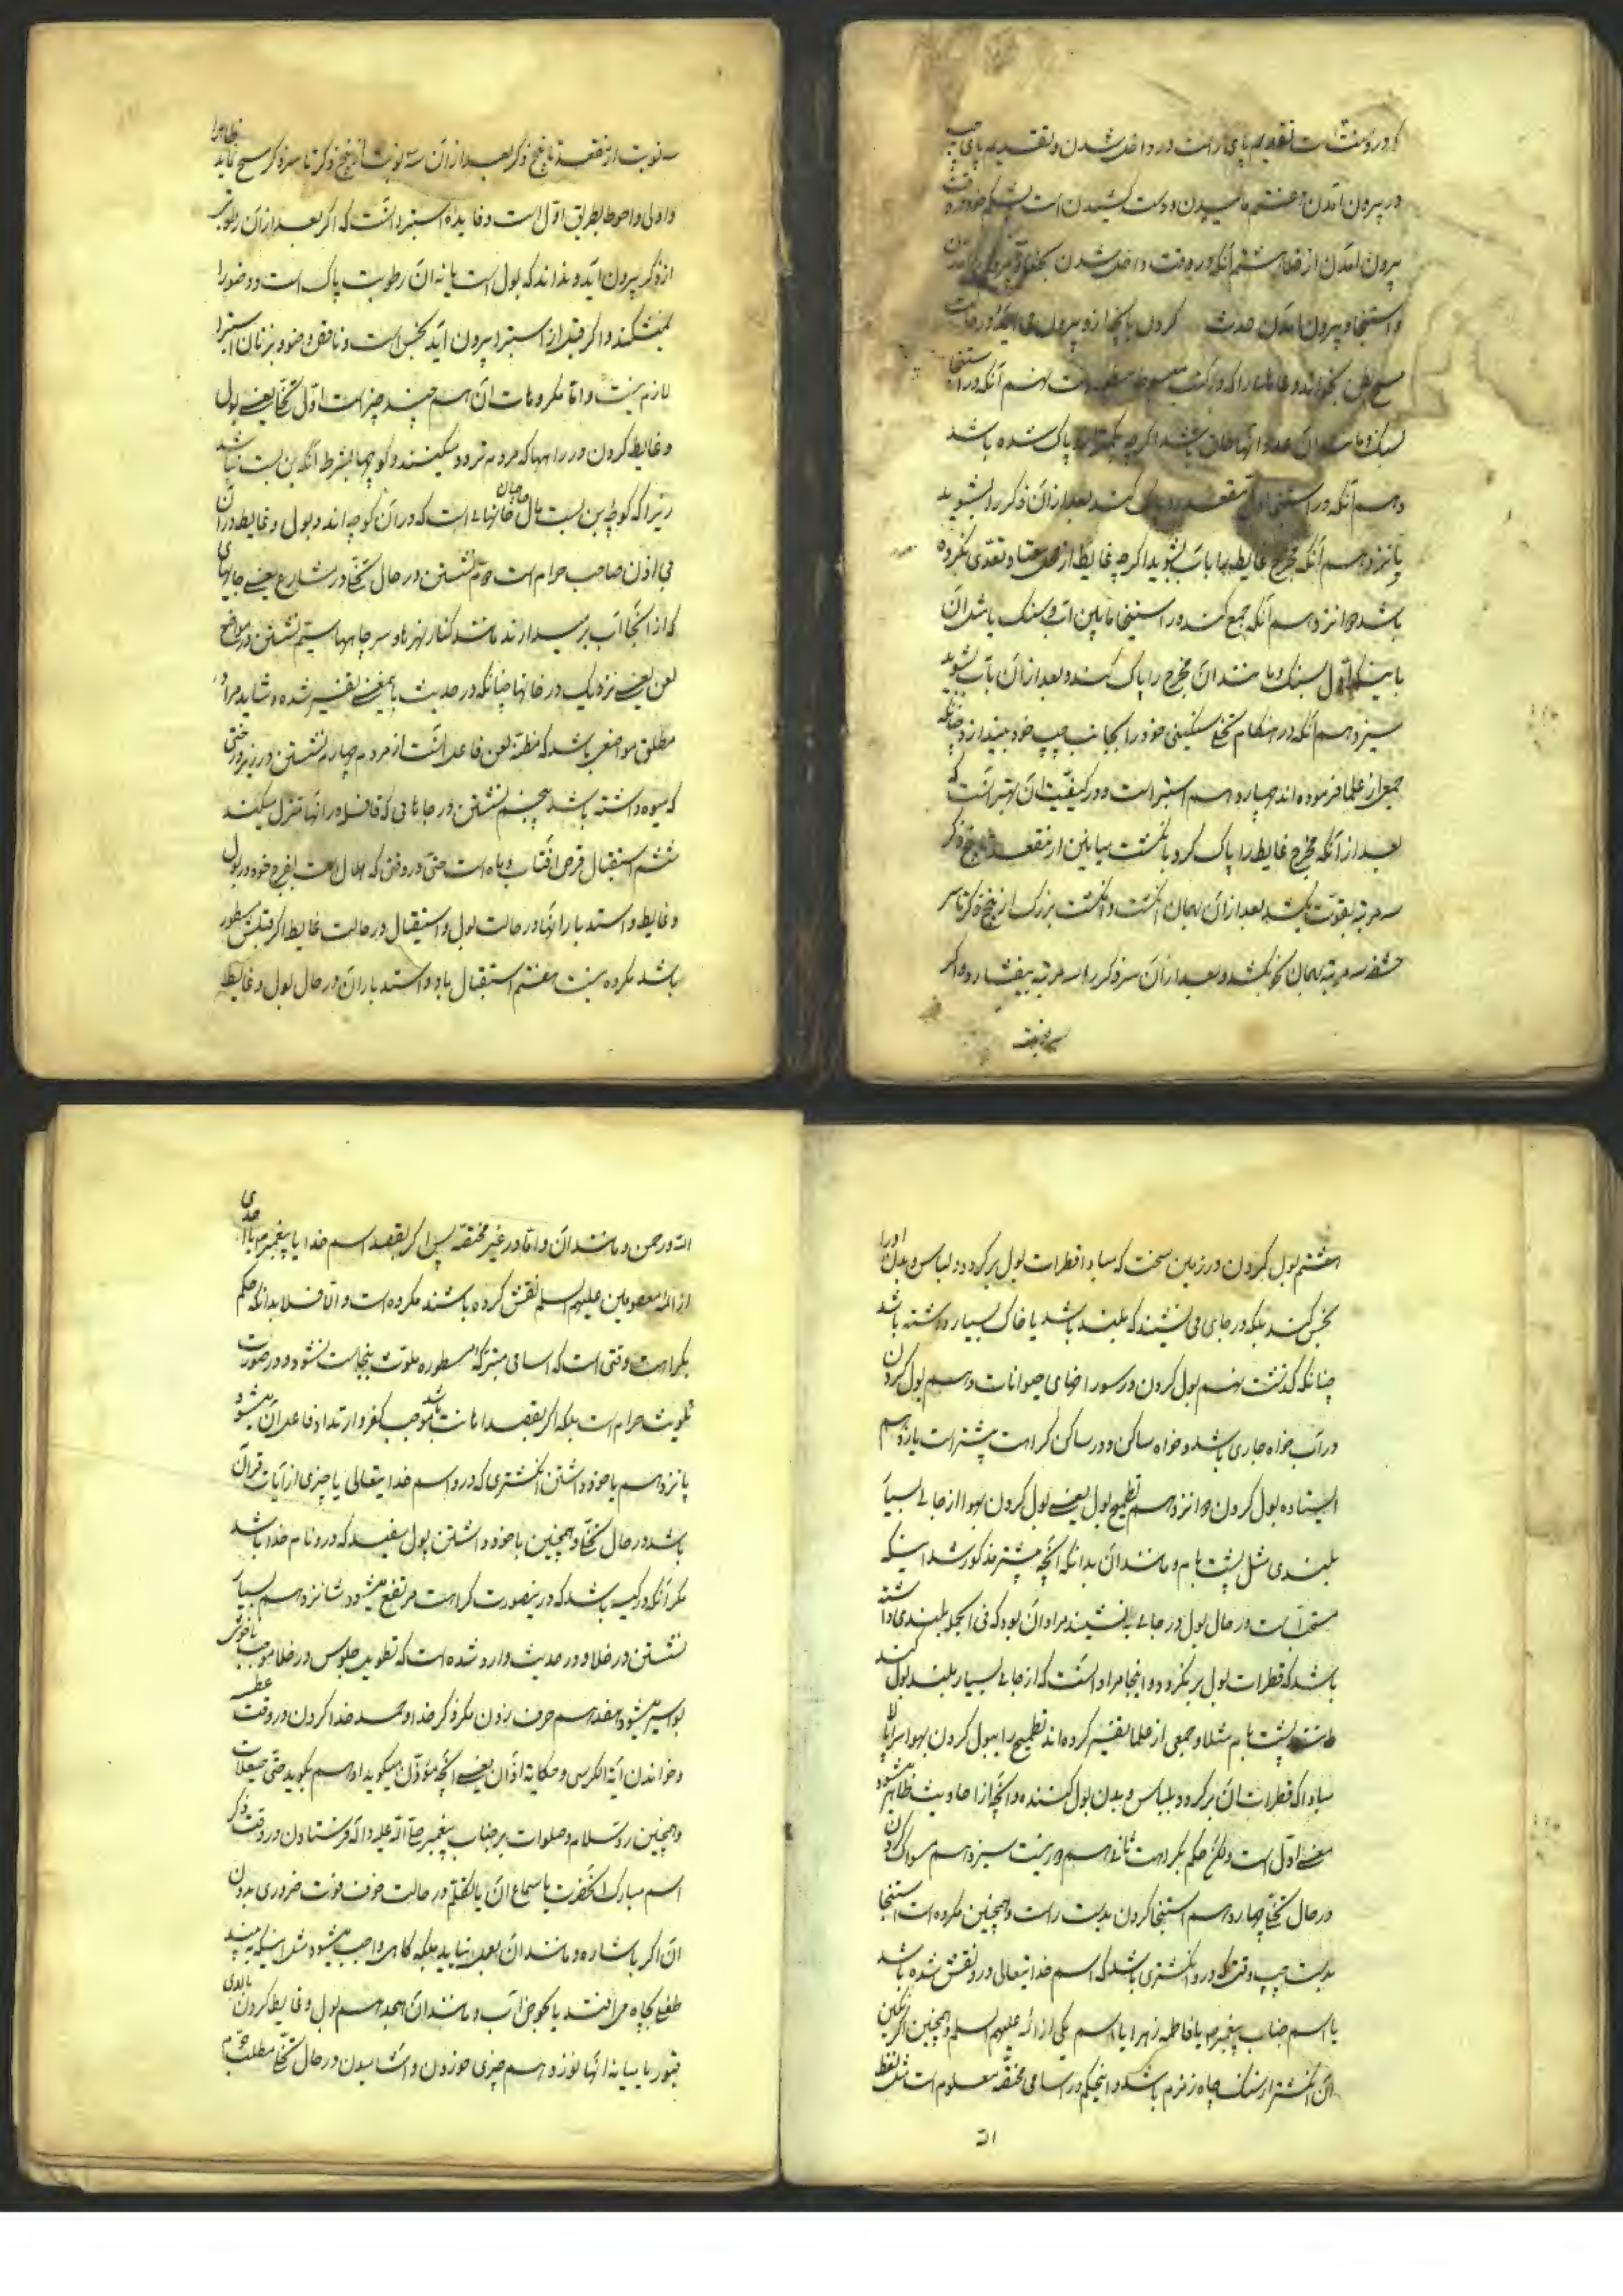 در پیرون آمدن هفتم مالیدن دست کشیدن است بشکم خود در وقت
پیرون آمدن از خلا هشتم آنکه در وقت داخل شدن
و استنجا و پیرون آمدن حدث کردن
مسح بطن بخواند دعاهائی را که در کتب مبسوطه مسطور است نهم آنکه در استنجا
بسنگ و مانند آن عدد آنها طاق باشد اگرچه بکمتر پاک شده باشد
دهم آنکه در استنجا اول مقعد را پاک کند بعد از آن ذکر را بشوید
یانزدهم آنکه مخرج غایط را بآب بشوید اگرچه غایط از محل معتاد تعدی نکرده
باشد دوانزدهم آنکه جمع کند در استنجا مابین آب و سنک یا مثل آن
باینکه اول بسنک و مانند آن مخرج را پاک کند و بعد از آن بآب بشوید
سیزدهم آنکه در هنکام تخلی سنکینی خود را بجانب چپ خود بیندازد چنانکه
جمعی از علما فرموده اند چهاردهم استبرا است و در کیفیت آن بهتر آنست که
بعد از آنکه مخرج غایط را پاک کرد بانکشت میانین از مقعد تا بیخ ذکر
سه مرتبه بقوت بکشد بعد از آن بهمان انکشت و انکشت بزرک از بیخ ذکر تا سر
حشفه سه مرتبه بهمان نحو بکشد و بعد از آن سر ذکر را سه مرتبه بیفشارد و اکر
سه نوبت
سه نوبت از مقعد تا بیخ ذکر بعد از آن سه نوبت از بیخ ذکر تا سر ذکر مسح نماید ظاهرا
و اولی و احوط طریق اول است و فایده استبرا آنست که اکر بعد از آن رطوبتی
از ذکر پیرون آید و نداند که بول است یا نه آن رطوبت پاک است و وضو را
نمیشکند و اکر قبل از استبرا پیرون آید نجس است و ناقض وضو و بر زنان استبرا
لازم نیست و اما مکروهات آن هم چند چیز است اول تخلی یعنی بول
و غایط کردن در راهها که مردم تردد میکنند و کوچها بشرط آنکه بن بست نباشد
زیرا که کوچه بن بست مال صاحبان خانهائی است که در آن کوچه اند و بول و غایط در آن
بی اذن صاحب حرام است دوم نشستن در حال تخلی در مشارع یعنی جاهای
که از آنجا آب بر میدارند مانند کنار نهرها و سر چاهها سیم نشستن در مواضع
لعن یعنی نزدیک در خانها چنانکه در حدیث باین معنی تفسیر شده و شاید مراد
مطلق مواضعی باشد که مظنه لعن فاعل آنست از مردم چهارم نشستن در زیر درختی
که میوه داشته باشد پنجم نشستن در جاهائی که قافله در آنها منزل میکنند
ششم استقبال قرص آفتاب و ماه است حتی در وقتی که هلال است بفرج خود در بول
و غایط و استدبار آنها در حالت بول و استقبال در حالت غایط اکر قبلش مستور
باشد مکروه نیست هفتم استقبال باد و استدبار آن در حال بول و غایط
هشتم بول کردن در زمین سخت که مبادا قطرات بول بر کردد و لباس و بدن او را
نجس کند بلکه در جای می نشیند که بلند باشد یا خاک بسیار داشته باشد
چنانکه کذشت نهم بول کردن در سوراخهای حیوانات دهم بول کردن
در آب خواه جاری باشد و خواه ساکن و در ساکن کراهت پیشتر است یازدهم
ایستاده بول کردن دوانزدهم تطمیح بول یعنی بول کردن بهوا از جای بسیار
بلندی مثل پشت بام و مانند آن بدانکه آنچه پیشتر مذکور شد از اینکه
مستحب است در حال بول در جای بلند بنشیند مراد آن بود که فی الجمله بلندی داشته
باشد که قطرات بول بر نکردد و اینجا مراد آنست که از جای بسیار بلند بول کند
مانند پشت بام مثلا و جمعی از علما تفسیر کرده اند تطمیح را ببول کردن بهوا سر بالا
مبادا که قطرات آن بر کردد بلباس و بدن بول کننده و آنچه از احادیث ظاهر میشود
معنی اول است و لکن حکم بکراهت ثانی هم دور نیست سیزدهم مسواک کردن
در حال تخلی چهاردهم استنجا کردن بدست راست و همچنین مکروه است استنجا
بدست چپ وقتی که در او انکشتری باشد که اسم خدا یتعالی در او نقش شده باشد
یا اسم جناب پیغمبر ص یا فاطمه زهرا یا اسم یکی از ائمه علیهم السلم و همچنین اکر نکین
آن انکشتر از سنک چاه زمزم باشد و اینحکم در اسامی مختصه معلوم است مثل لفظ
الله
الله و رحمن و مانند آن و اما در غیر مختصه پس اکر بقصد اسم خدا یا پیغمبر ص یا احدی
از ائمه معصومین علیهم السلم نقش کرده باشند مکروه است و الا فلا بدانکه حکم
بکراهت وقتی است که اسامی متبرکه مسطوره ملوث بنجاست نشود و در صورت
تلویث حرام است بلکه اکر بقصد اهانت باشد موجب کفر و ارتداد فاعل آن میشود
پانزدهم با خود داشتن انکشتری که در او اسم خدا یتعالی یا چیزی از آیات قرآن
باشد در حال تخلی و همچنین با خود داشتن پول سفید که در او نام خدا باشد
مکر آنکه در کیسه باشد که در ینصورت کراهت مرتفع میشود شانزدهم بسیار
نشستن در خلا و در حدیث وارد شده است که تطویل جلوس در خلا موجب ناخوشی
بواسیر میشود هفدهم حرف زدن مکر ذکر خدا و حمد خدا کردن در وقت عطسه
و خواندن آیة الکرسی و حکایة اذان یعنی آنچه مؤذن میکوید او هم بکوید حتی حیعلات
و همچنین رد سلام و صلوات بر جناب پیغمبر صلی الله علیه و اله فرستادن در وقت ذکر
اسم مبارک آنحضرت یا سماع آن یا تکلم در حالت خوف فوت ضروری بدون
آن اکر باشاره و مانند آن بعمل نیاید بلکه کاهی واجب میشود مثل اینکه به بیند
طفلی بچاه می افتد یا بحوض آب و مانند آن هجدهم بول و غایط کردن بالای
قبور یا میانه آنها نوزدهم چیزی خوردن و آشامیدن در حال تخلی